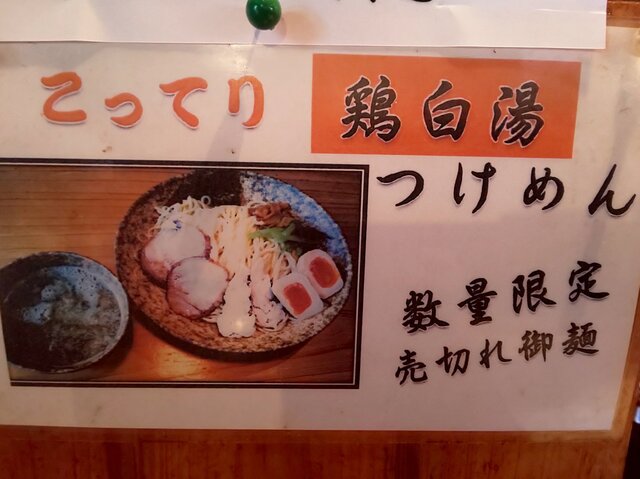 こってり 鶏白湯
つけめん
数量限定
売切れ御麺